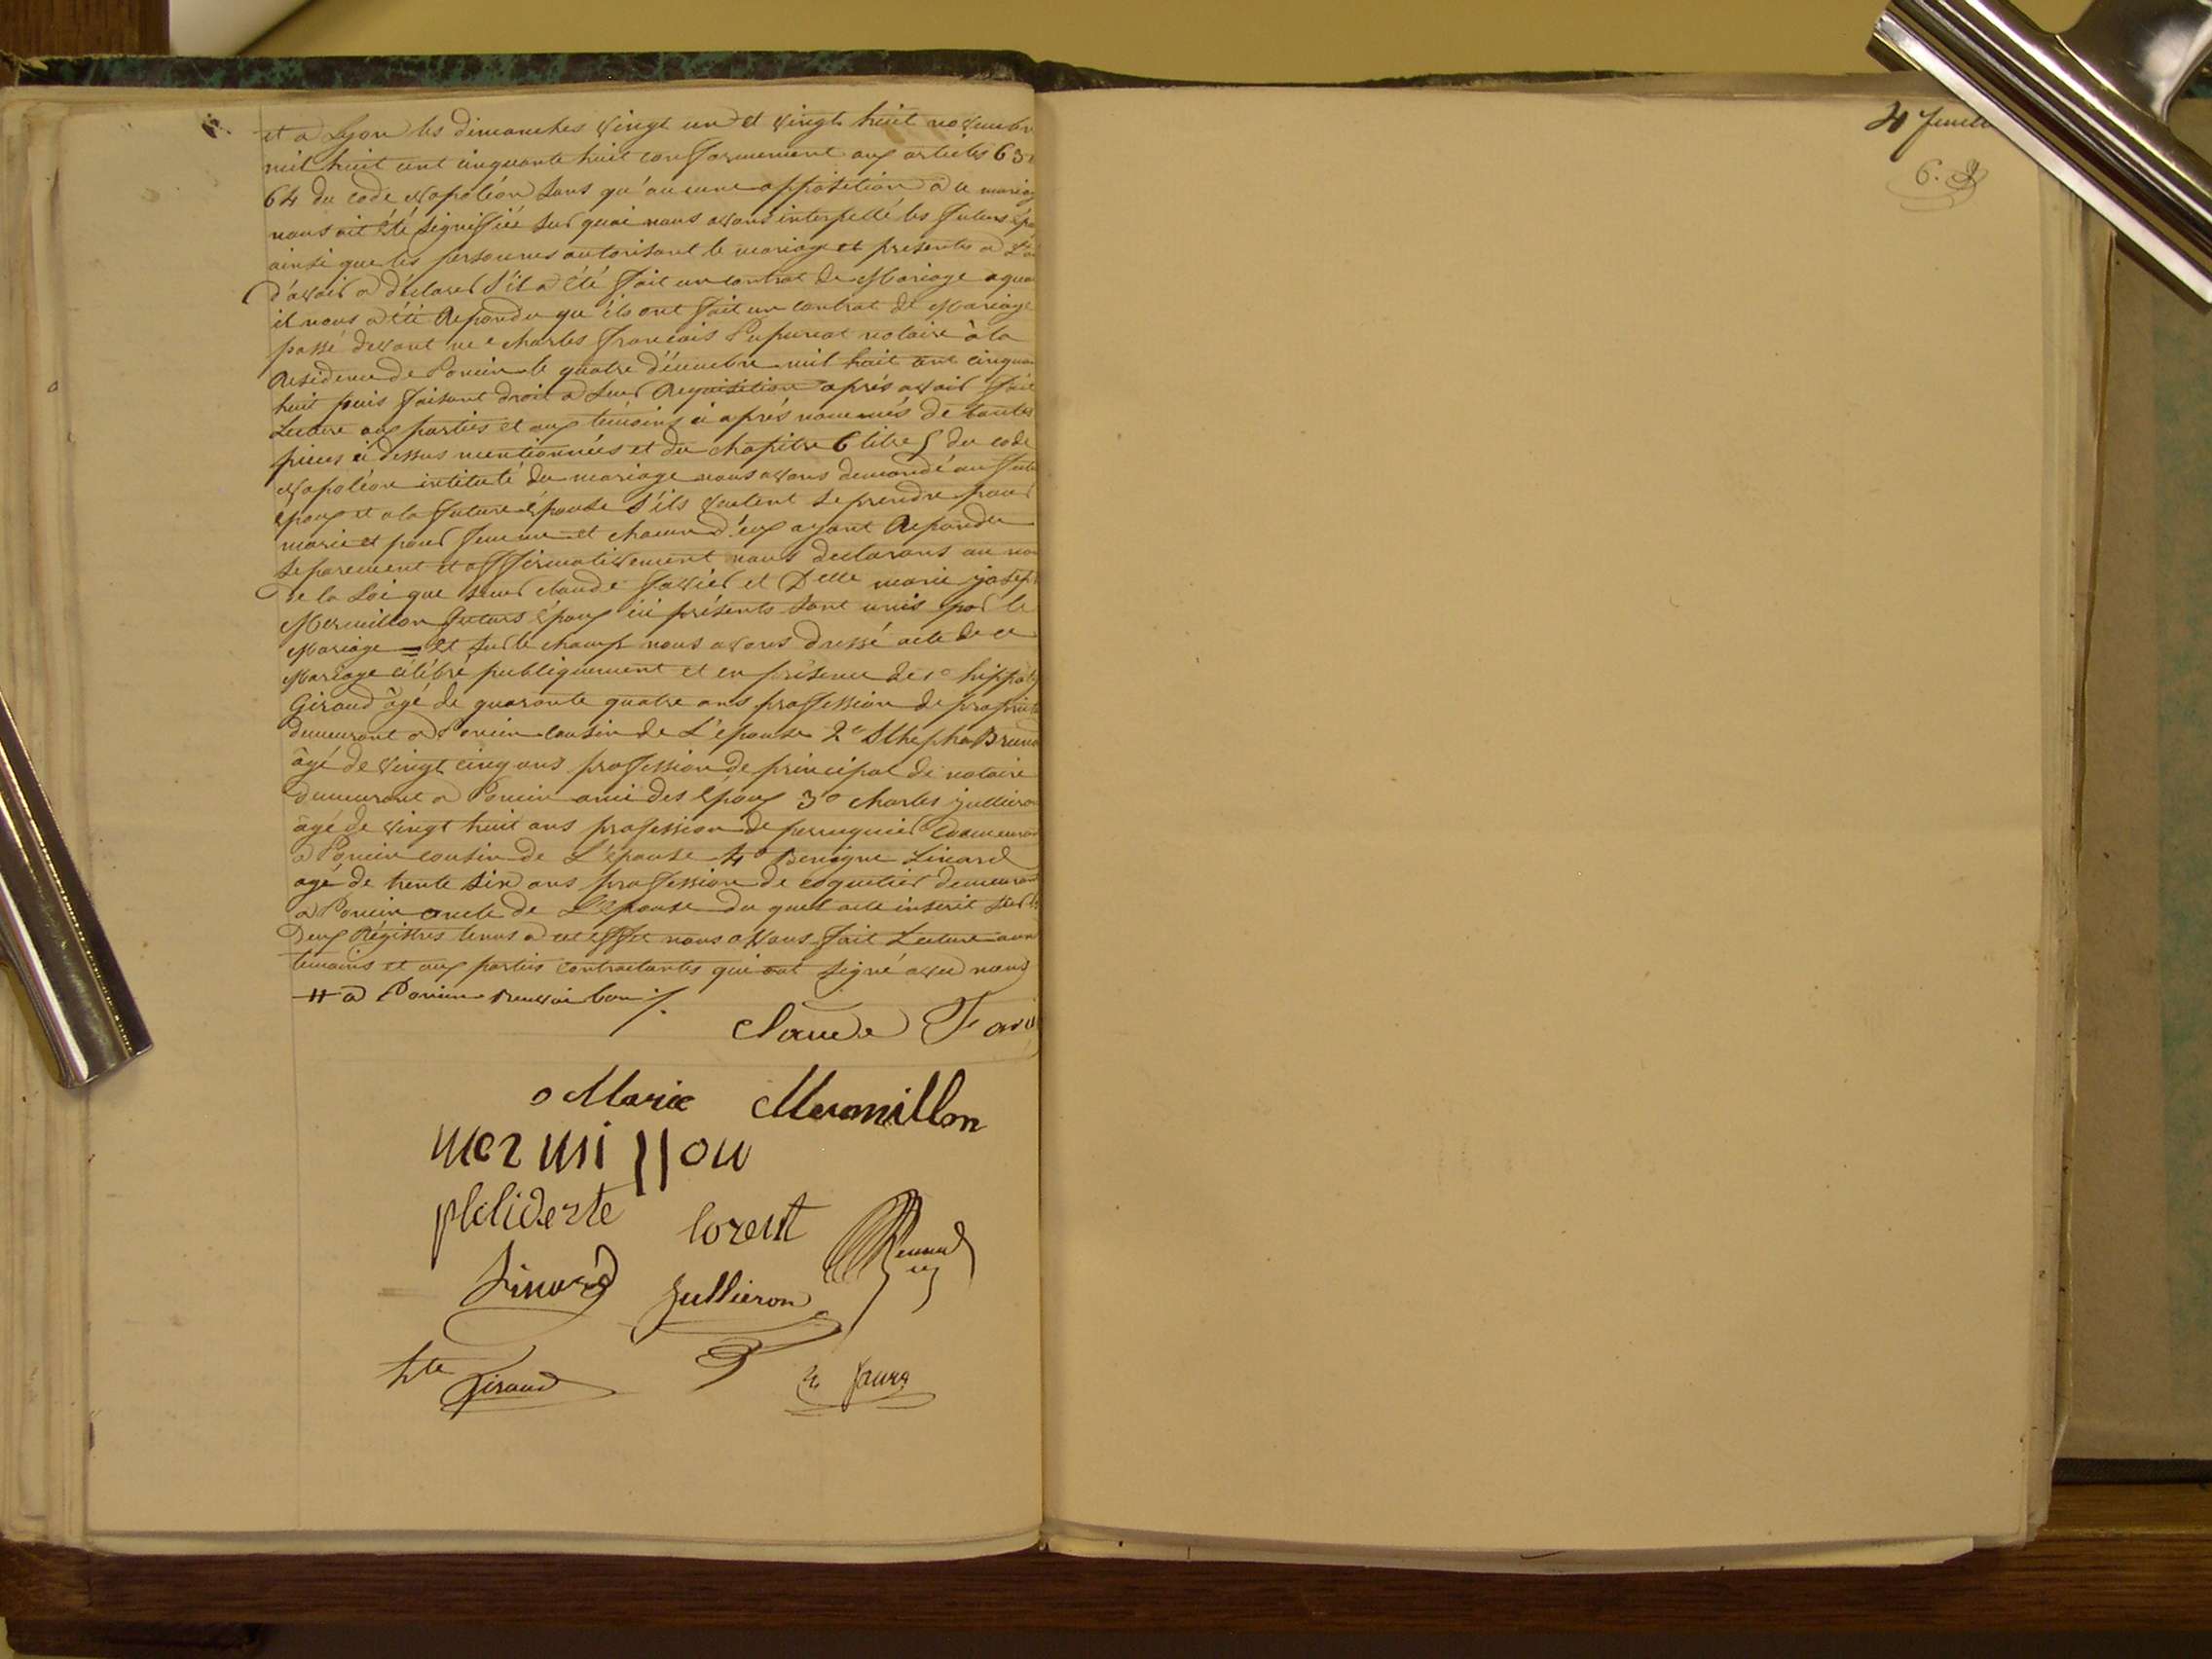 et a Lyon les dimanches vingt un et vingt huit novembre
mil huit cent cinquante huit conformement aux articles 63 et
64 du code Napoléon sans qu'aucune opposition à ce mariag
nous ait été signifiée sur quoi nous avons interpellé les futurs épo
ainsi que les personnes autorisant le mariage et presentes a L'a
d'avoir a déclarer s'il a été fait un contrat de Mariage a quoi
il nous a été Repondu qu'ils ont fait un contrat de Mariage
passé devant me charles francois notaire à la
Residence de Poncin le quatre décembre mil huit cent cinquan
huit puis faisant droit a leur Requisition après avoir fait
Lecture aux parties et aux témoins ci après nommés de toutes
pieces ci dessus mentionnées et du chapitre 6 titre 5 du code
Napoléon intitulé du mariage nous avons demandé au futu
epoux et a la future épouse s'ils veulent se prendre pour
mari et pour femme et chacun d'eux ayant Repondu
separement et affirmativement nous declarons au nom
de la Loi que sieur claude favier et Delle marie joseph
Mermillon futurs époux ici présents sont unis par le
Mariage = et sur le champ nous avons dressé acte de ce
Mariage célébré publiquement et en présence de 1o hippoly
Giraud âgé de quarante quatre ans profession de proprieta
demeurant a Poncin cousin de L'épouse 2o Brun
âgé de vingt cinq ans profession de principal de notaire
demeurant a Poncin ami des époux 3o charles jullieron
âgé de vingt huit ans profession de perruquier demeurant
a Poncin cousin de L'épouse 4o Benigne Linard
agé de trente six ans profession de coquetier demeurant
a Poncin oncle de L'épouse du quel acte inscrit sur les
Deux Régistres tenus a cet effet nous avons fait Lecture aux
temoins et aux parties contractantes qui ont signé avec nous
# a Poncin renvoi bon ./.
Claude Favi
Marie Mermillon
mermillon
lorent
Linard Jullieron
hte Giraud
4 feuille
6.